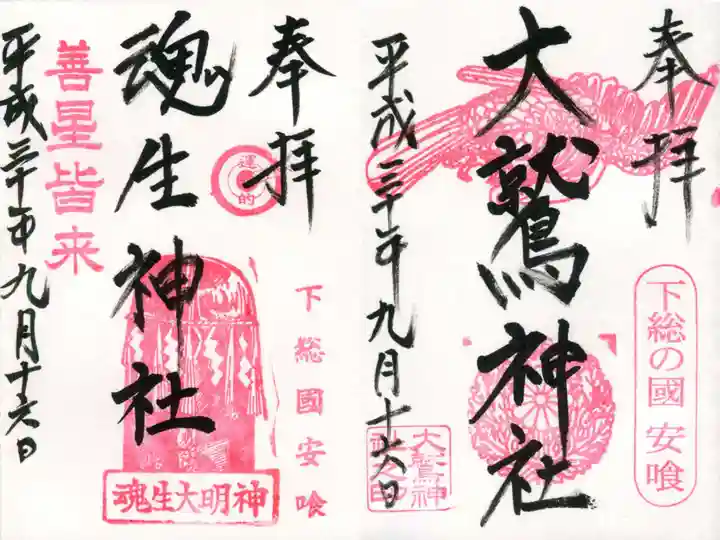 奉拝
大鷲神社
平成三十年九月十六日
下総の國 安喰
大鷲神
奉拝
運的
魂生神社
善星皆来
平成三十年九月十六日
下総國安喰
魂生大明神